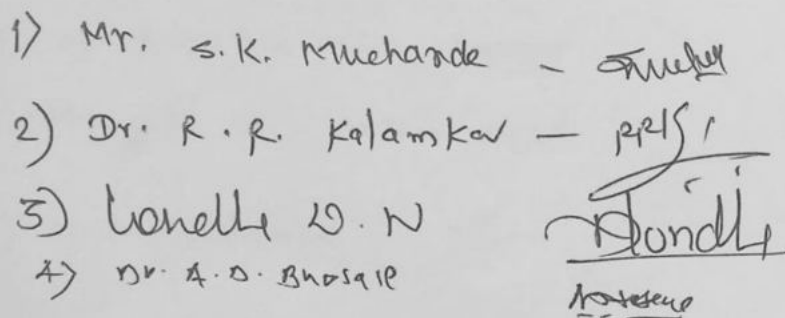 1) Mr. S.K. Muchande -
2) Dr. R.R. Kalamkar -
3) Londhe D.N Londhe
4) Dr. A.D. Bhosale